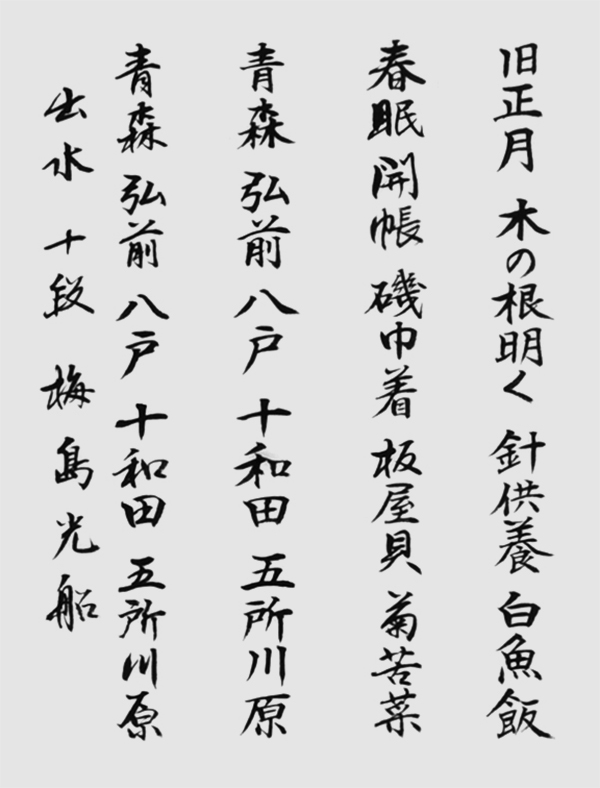 旧正月 木の根明く 針供養 白魚飯
春眠 開帳 磯巾着 板屋貝 菊苦菜
青森 弘前 八戸 十和田 五所川原
青森 弘前 八戸 十和田 五所川原
出水 十段 梅島光船